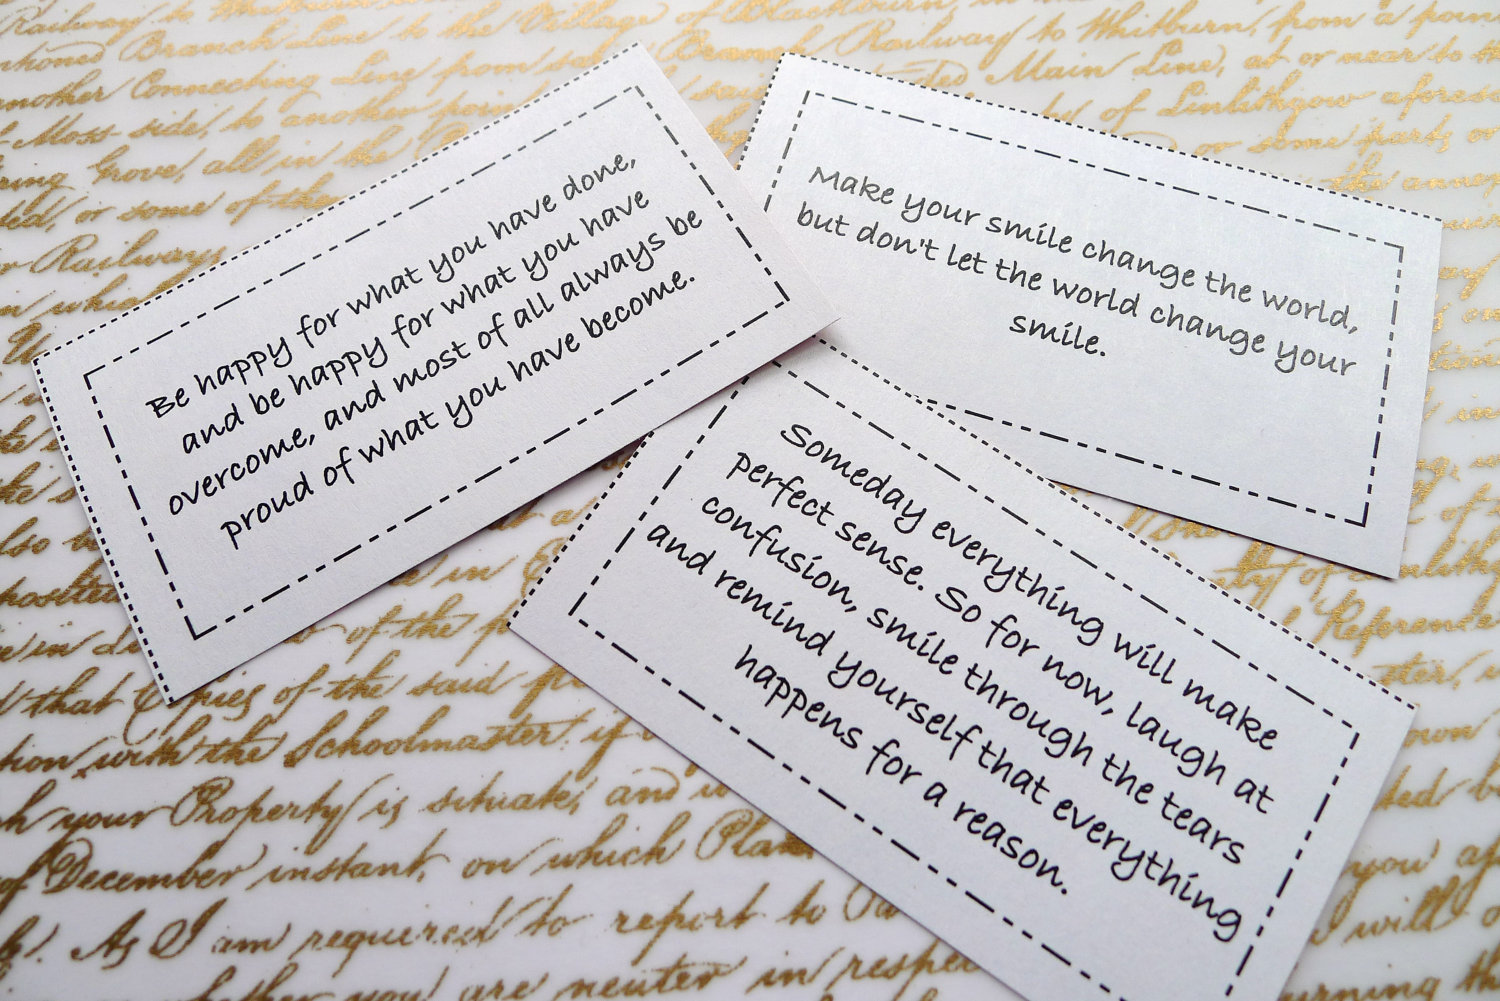 Be happy for what you have done,
and be happy for what you have
overcome, and most of all always be
proud of what you have become.
Make your smile change the world,
but don't let the world change your
smile.
Someday everything will make
perfect sense. So for now, laugh at
confusion, smile through the tears
and remind yourself that everything
happens for a reason.
Railway to the Village of Blackburn, in the
Branch Railway to Whitburn, from a point
Branch Line to the
another Connecting Line from said
Main Line, at or near to the
Moss-side, to another point
of Linlithgow aforesaid
Grove, all in the
or some parts, or
or some of the
the annexed
or Railways
in which
of the
that Copies of the said
tion with the Schoolmaster, if
h your Property is situate, and
of December instant, on which Plan
As I am required to report to Pa
whether you are neuter in respec
you
will